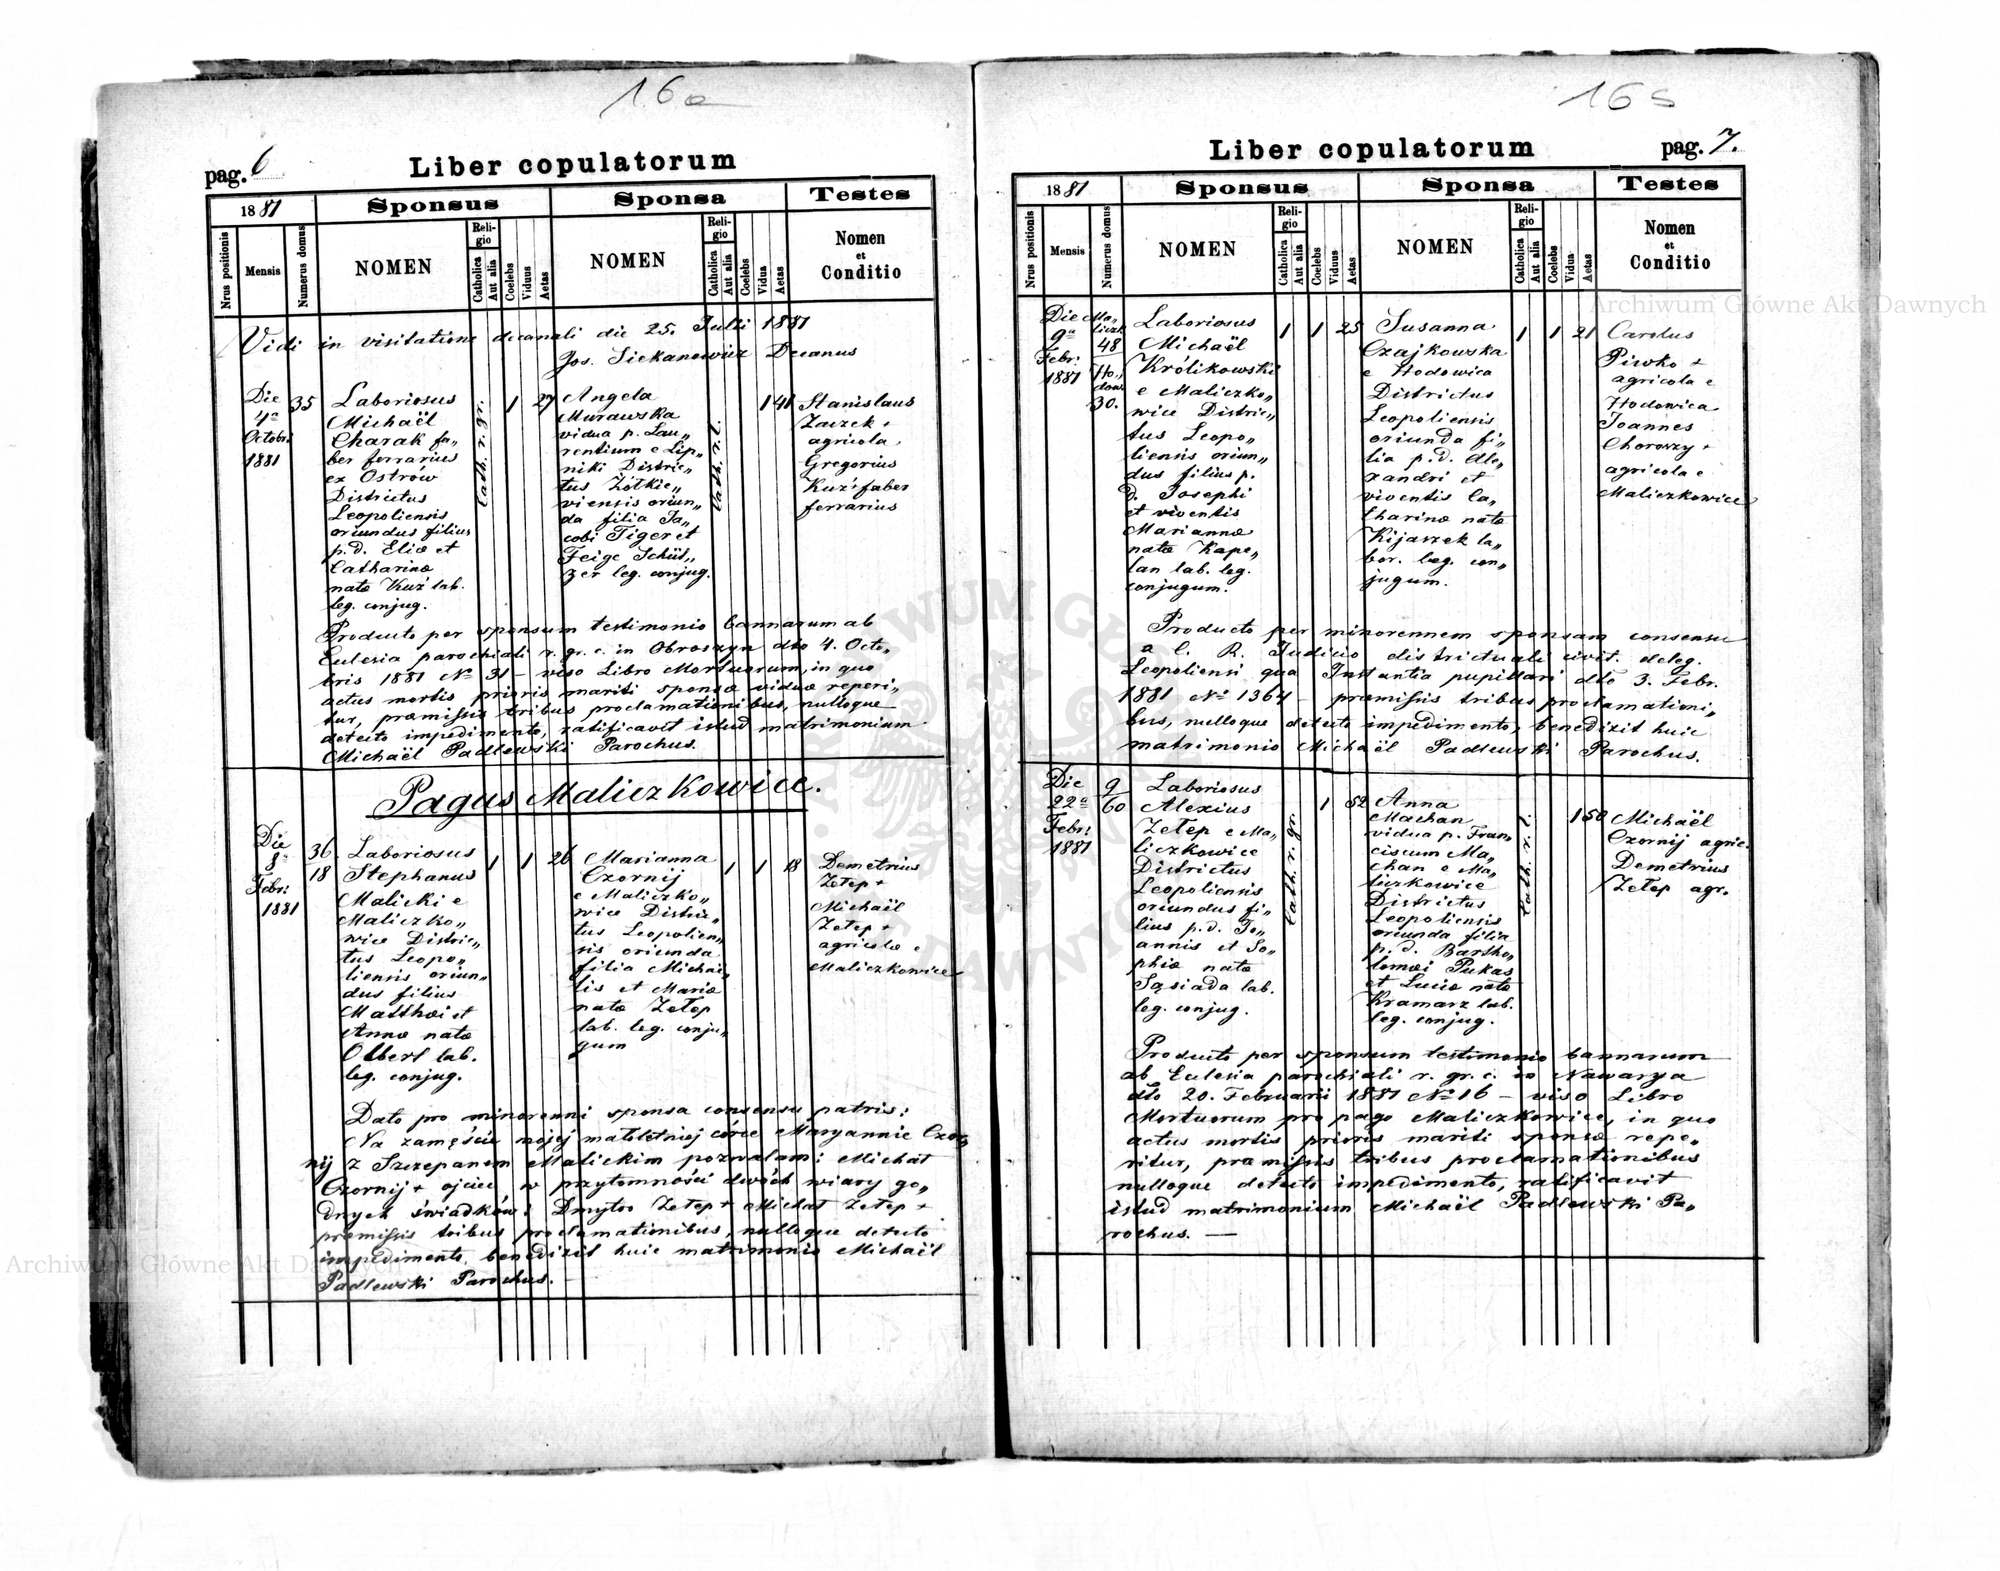 16a
pag. 6
Liber copulatorum
1881
Sponsus
Sponsa
Testes
Nrus positionis
Mensis
Numerus domus
NOMEN
Religio
Catholica
Aut alia
Coelebs
Viduus
Aetas
NOMEN
Religio
Catholica
Aut alia
Coelebs
Vidua
Aetas
Nomen
et
Conditio
Vidi in visitatione decanali die 25. Julii 1881
Jos. Siekanowicz Decanus
Die
4ª
Octobr.
1881
35
Laboriosus
Michaël
Charak fa„
ber ferrarius
ex Ostrów
Districtus
Leopoliensis
oriundus filius
p. d. Eliæ et
Catharinæ
natæ Kuź lab.
leg. conjug.
Cath. r. gr.
1
27
Angela
Murawska
vidua p. Lau„
rentium e Lip„
niki Distric„
tus Żółkie„
viensis oriun„
da filia Ja„
cobi Tiger et
Feige Schüt„
zer leg. conjug.
Cath. r. l.
1
41
Stanislaus
Zaczek +
agricola
Gregorius
Kuź faber
ferrarius
Producto per sponsum testimonio bannarum ab
Eclesia parochiali r. gr. c. in Obroszyn dto 4. Octo„
bris 1881 No 31 – viso Libro Mortuorum, in quo
actus mortis prioris mariti sponsæ viduæ reperi„
tur, præmissis tribus proclamationibus, nulloque
detecto impedimento, ratificavit istud matrimonium
Michaël Padlewski Parochus.
Pagus Maliczkowice.
Die
8ª
Febr:
1881
36
18
Laboriosus
Stephanus
Malicki e
Maliczko„
wice Distric„
tus Leopo„
liensis oriun„
dus filius
Matthæi et
Annæ natæ
Olbert lab.
leg. conjug.
1
1
26
Marianna
Czornij
e Maliczko„
wice Distric„
tus Leopolien„
sis oriunda
filia Michaë„
lis et Mariæ
natæ Zełep
lab. leg. conju„
gum
1
1
18
Demetrius
Zełep +
Michaël
Zełep +
agricolæ e
Maliczkowice
Dato pro minorenni sponsa consensu patris:
Na zamęście mojej małoletniej córce Maryannie Czor„
nij z Szczepanem Malickim pozwalam: Michał
Czornij + ojciec w przytomności dwóch wiary go„
dnych świadków: Dmytro Zełep + Michał Zełep +
præmissis tribus proclamationibus, nulloque detecto
impedimento, benedixit huic matrimonio Michaël
Padlewski Parochus.
165
Liber copulatorum
pag. 7.
1881
Sponsus
Sponsa
Testes
Nrus positionis
Mensis
Numerus domus
NOMEN
Religio
Catholica
Aut alia
Coelebs
Viduus
Aetas
NOMEN
Religio
Catholica
Aut alia
Coelebs
Vidua
Aetas
Nomen
et
Conditio
Die
9ª
Febr:
1881
Ma„
liczk
48
Ho„
dow.
30.
Laboriosus
Michaël
Królikowski
e Maliczko„
wice Distric„
tus Leopo„
liensis oriun„
dus filius p.
d. Josephi
et viventis
Mariannæ
natæ Kape„
lan lab. leg.
conjugum.
1
1
25
Susanna
Czajkowska
e Hodowica
Districtus
Leopoliensis
oriunda fi„
lia p. d. Ale„
xandri et
viventis Ca„
tharinæ natæ
Kijaszek la„
bor. leg. con„
jugum.
1
1
21
Carolus
Piwko +
agricola e
Hodowica
Joannes
Choroszy +
agricola e
Maliczkowice
Producto per minorennem sponsam consensu
a C. R. Judicio districtuali civit. deleg.
Leopoliensi qua Instantia pupillari dto 3. Febr.
1881 No 1364 – præmissis tribus proclamationi„
bus, nulloque detecto impedimento, benedixit huic
matrimonio Michaël Padlewski Parochus.
Die
22ª
Febr:
1881
9
60
Laboriosus
Alexius
Zełep e Ma„
liczkowice
Districtus
Leopoliensis
oriundus fi„
lius p. d. Jo„
annis et So„
phiæ natæ
Sąsiada lab.
leg. conjug.
Cath. r. gr.
1
52
Anna
Machan
vidua p. Fran„
ciscum Ma„
chan e Ma„
liczkowice
Districtus
Leopoliensis
oriunda filia
p. d. Bartho„
lomæi Pukas
et Luciæ natæ
Kramarz lab.
leg. conjug.
Cath. r. l.
1
50
Michaël
Czornij agric.
Demetrius
Zełep agr.
Producto per sponsum testimonio bannarum
ab Eclesia parochiali r. gr. c. in Nawarya
dto 20. Februarii 1881 No 16 – viso Libro
Mortuorum pro pago Maliczkowice, in quo
actus mortis prioris mariti sponsæ repe„
ritur, præmissis tribus proclamationibus
nulloque detecto impedimento, ratificavit
istud matrimonium Michaël Padlewski Pa„
rochus. —
Archiwum Główne Akt Dawnych
Archiwum Główne Akt Dawnych